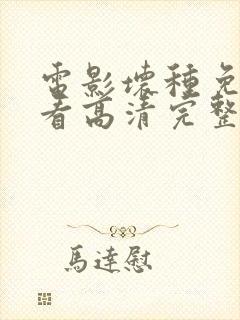 電影壞種免
看高清完整
馬達慰